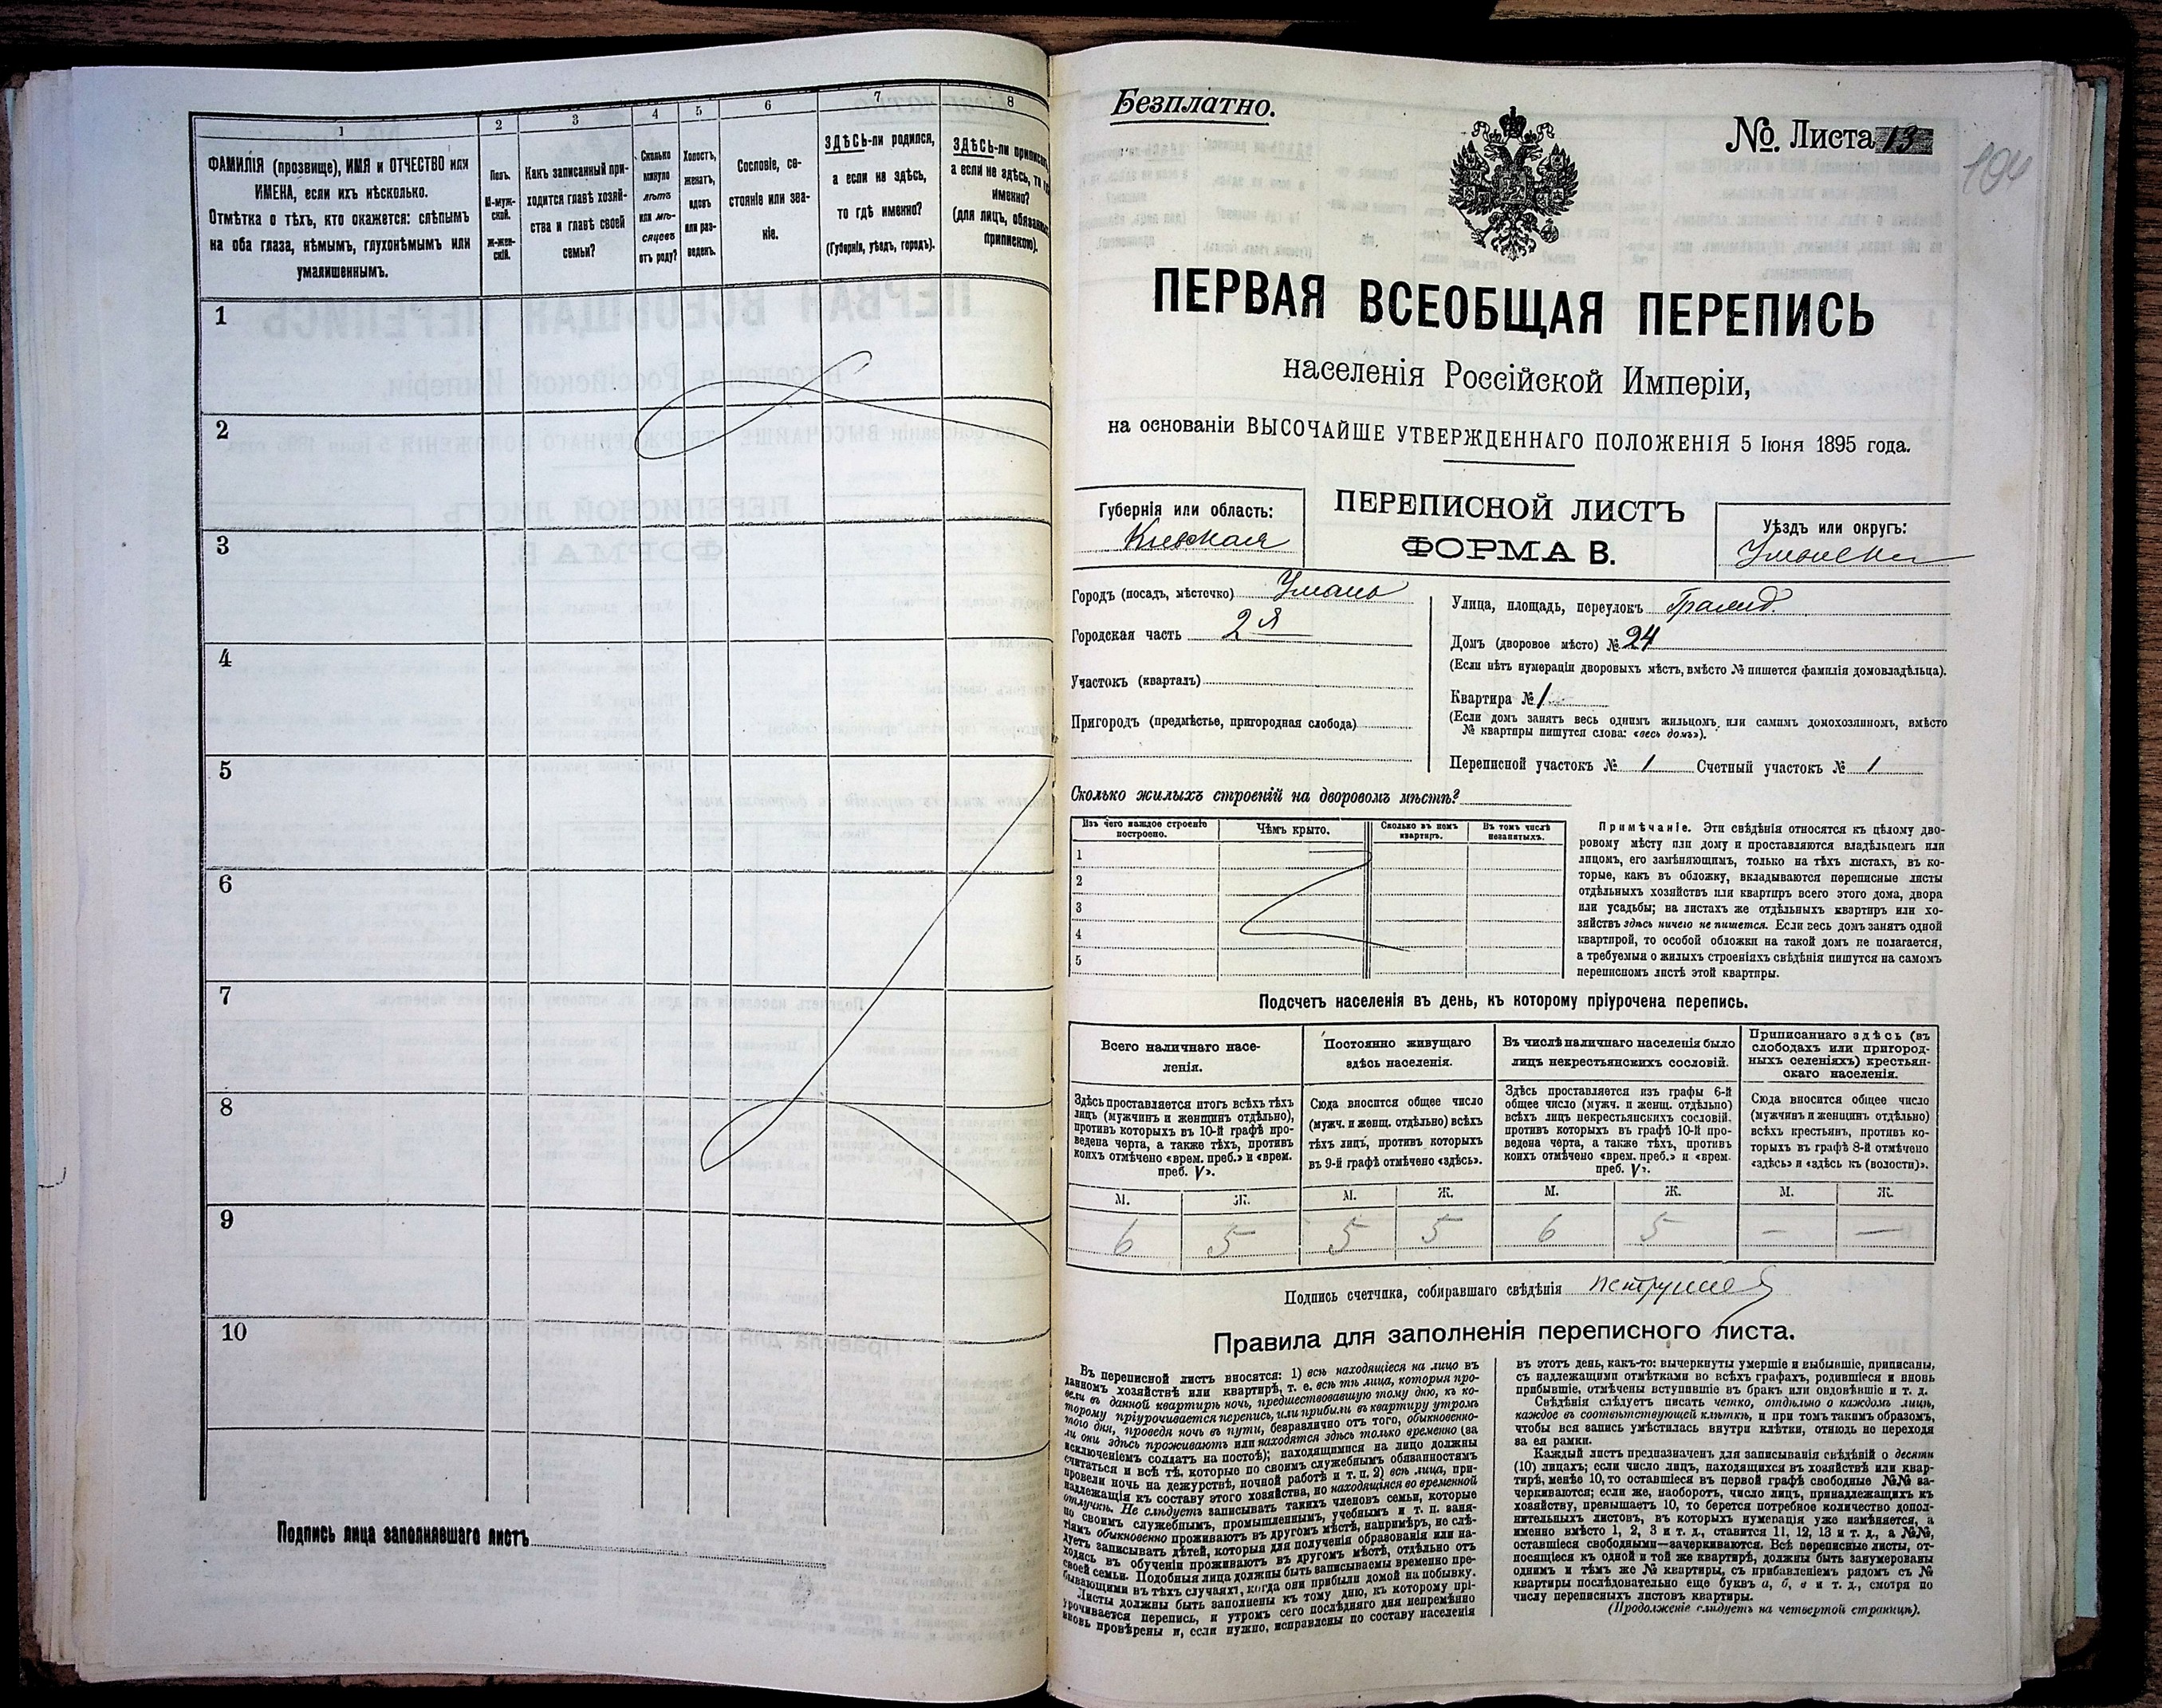 1
2
3
4
5
6
7
8
ФАМИЛІЯ (прозвище), ИМЯ и ОТЧЕСТВО или
ИМЕНА, если ихъ нѣсколько.
Отмѣтка о тѣхъ, кто окажется: слѣпымъ
на оба глаза, нѣмымъ, глухонѣмымъ или
умалишеннымъ.
Полъ.
М-муж-
ской.
Ж-жен-
скій.
Какъ записанный при-
ходится главѣ хозяй-
ства и главѣ своей
семьи?
Сколько
минуло
лѣтъ
или мѣ-
сяцевъ
отъ роду?
Холостъ,
женатъ,
вдовъ
или раз-
веденъ.
Сословіе, со-
стояніе или зва-
ніе.
ЗДѢСЬ-ли родился,
а если не здѣсь,
то гдѣ именно?
(Губернія, уѣздъ, городъ).
ЗДѢСЬ-ли приписанъ,
а если не здѣсь, то гдѣ
именно?
(для лицъ, обязанныхъ
припискою).
1
2
3
4
5
6
7
8
9
10
Подпись лица заполнявшаго листъ
Безплатно.
№ Листа 13
194
ПЕРВАЯ ВСЕОБЩАЯ ПЕРЕПИСЬ
населенія Россійской Имперіи,
на основаніи ВЫСОЧАЙШЕ УТВЕРЖДЕННАГО ПОЛОЖЕНІЯ 5 Іюня 1895 года.
Губернія или область:
Кіевская
ПЕРЕПИСНОЙ ЛИСТЪ
ФОРМА В.
Уѣздъ или округъ:
Городъ (посадъ, мѣстечко) Умань
Городская часть 2 я
Участокъ (кварталъ)
Пригородъ (предмѣстье, пригородная слобода)
Улица, площадь, переулокъ
Домъ (дворовое мѣсто) № 24
(Если нѣтъ нумераціи дворовыхъ мѣстъ, вмѣсто № пишется фамилія домовладѣльца).
Квартира № 1
(Если домъ занятъ весь однимъ жильцомъ или самимъ домохозяиномъ, вмѣсто
№ квартиры пишутся слова: «весь домъ»).
Переписной участокъ № 1 Счетный участокъ № 1
Сколько жилыхъ строеній на дворовомъ мѣстѣ?
Изъ чего каждое строеніе
построено.
Чѣмъ крыто.
Сколько въ немъ
квартиръ.
Въ томъ числѣ
незанятыхъ.
1
2
3
4
5
Примѣчаніе. Эти свѣдѣнія относятся къ цѣлому дво-
ровому мѣсту или дому и проставляются владѣльцемъ или
лицомъ, его замѣняющимъ, только на тѣхъ листахъ, въ ко-
торые, какъ въ обложку, вкладываются переписные листы
отдѣльныхъ хозяйствъ или квартиръ всего этого дома, двора
или усадьбы; на листахъ же отдѣльныхъ квартиръ или хо-
зяйствъ здѣсь ничего не пишется. Если весь домъ занятъ одной
квартирой, то особой обложки на такой домъ не полагается,
а требуемыя о жилыхъ строеніяхъ свѣдѣнія пишутся на самомъ
переписномъ листѣ этой квартиры.
Подсчетъ населенія въ день, къ которому пріурочена перепись.
Всего наличнаго насе-
ленія.
Здѣсь проставляется итогъ всѣхъ тѣхъ
лицъ (мужчинъ и женщинъ отдѣльно),
противъ которыхъ въ 10-й графѣ про-
ведена черта, а также тѣхъ, противъ
коихъ отмѣчено «врем. преб.» и «врем.
преб. V».
Постоянно живущаго
здѣсь населенія.
Сюда вносится общее число
(мужч. и женщ. отдѣльно) всѣхъ
тѣхъ лицъ, противъ которыхъ
въ 9-й графѣ отмѣчено «здѣсь».
Въ числѣ наличнаго населенія было
лицъ некрестьянскихъ сословій.
Здѣсь проставляется изъ графы 6-й
общее число (мужч. и женщ. отдѣльно)
всѣхъ лицъ некрестьянскихъ сословій.
противъ которыхъ въ графѣ 10-й про-
ведена черта, а также тѣхъ, противъ
коихъ отмѣчено «врем. преб.» и «врем.
преб. V».
Приписаннаго здѣсь (въ
слободахъ или пригород-
ныхъ селеніяхъ) крестьян-
скаго населенія.
Сюда вносится общее число
(мужчинъ и женщинъ отдѣльно)
всѣхъ крестьянъ, противъ ко-
торыхъ въ графѣ 8-й отмѣчено
«здѣсь» и «здѣсь къ (волости)».
М. Ж. М. Ж. М. Ж. М. Ж.
6 5 5 5 6 5 — —
Подпись счетчика, собиравшаго свѣдѣнія
Правила для заполненія переписного листа.
Въ переписной листъ вносятся: 1) всѣ находящіеся на лицо въ
данномъ хозяйствѣ или квартирѣ, т. е. всѣ тѣ лица, которыя про-
вели въ данной квартирѣ ночь, предшествовавшую тому дню, къ ко-
торому пріурочивается перепись, или прибыли въ квартиру утромъ
того дня, проведя ночь въ пути, безразлично отъ того, обыкновенно-
ли они здѣсь проживаютъ или находятся здѣсь только временно (за
исключеніемъ солдатъ на постоѣ); находящимися на лицо должны
считаться и всѣ тѣ, которые по своимъ служебнымъ обязанностямъ
провели ночь на дежурствѣ, ночной работѣ и т. п. 2) всѣ лица, при-
надлежащія къ составу этого хозяйства, но находящіяся во временной
отлучкѣ. Не слѣдуетъ записывать такихъ членовъ семьи, которые
по своимъ служебнымъ, промышленнымъ, учебнымъ и т. п. заня-
тіямъ обыкновенно проживаютъ въ другомъ мѣстѣ, напримѣръ, не слѣ-
дуетъ записывать дѣтей, которыя для полученія образованія или на-
ходясь въ обученіи проживаютъ въ другомъ мѣстѣ, отдѣльно отъ
своей семьи. Подобныя лица должны быть записываемы временно пре-
бывающими въ тѣхъ случаяхъ, когда они прибыли домой на побывку.
Листы должны быть заполнены къ тому дню, къ которому прі-
урочивается перепись, и утромъ сего послѣдняго дня непремѣнно
вновь провѣрены и, если нужно, исправлены по составу населенія
въ этотъ день, какъ-то: вычеркнуты умершіе и выбывшіе, приписаны,
съ надлежащими отмѣтками во всѣхъ графахъ, родившіеся и вновь
прибывшіе, отмѣчены вступившіе въ бракъ или овдовѣвшіе и т. д.
Свѣдѣнія слѣдуетъ писать четко, отдѣльно о каждомъ лицѣ,
каждое въ соотвѣтствующей клѣткѣ, и при томъ такимъ образомъ,
чтобы вся запись умѣстилась внутри клѣтки, отнюдь не переходя
за ея рамки.
Каждый листъ предназначенъ для записыванія свѣдѣній о десяти
(10) лицахъ; если число лицъ, находящихся въ хозяйствѣ или квар-
тирѣ, менѣе 10, то оставшіеся въ первой графѣ свободные №№ за-
черкиваются; если же, наоборотъ, число лицъ, принадлежащихъ къ
хозяйству, превышаетъ 10, то берется потребное количество допол-
нительныхъ листовъ, въ которыхъ нумерація уже измѣняется, а
именно вмѣсто 1, 2, 3 и т. д., ставится 11, 12, 13 и т. д., а №№,
оставшіеся свободными—зачеркиваются. Всѣ переписные листы, от-
носящіеся къ одной и той же квартирѣ, должны быть занумерованы
однимъ и тѣмъ же № квартиры, съ прибавленіемъ рядомъ съ №
квартиры послѣдовательно еще буквъ а, б, в и т. д., смотря по
числу переписныхъ листовъ квартиры.
(Продолженіе слѣдуетъ на четвертой страницѣ).